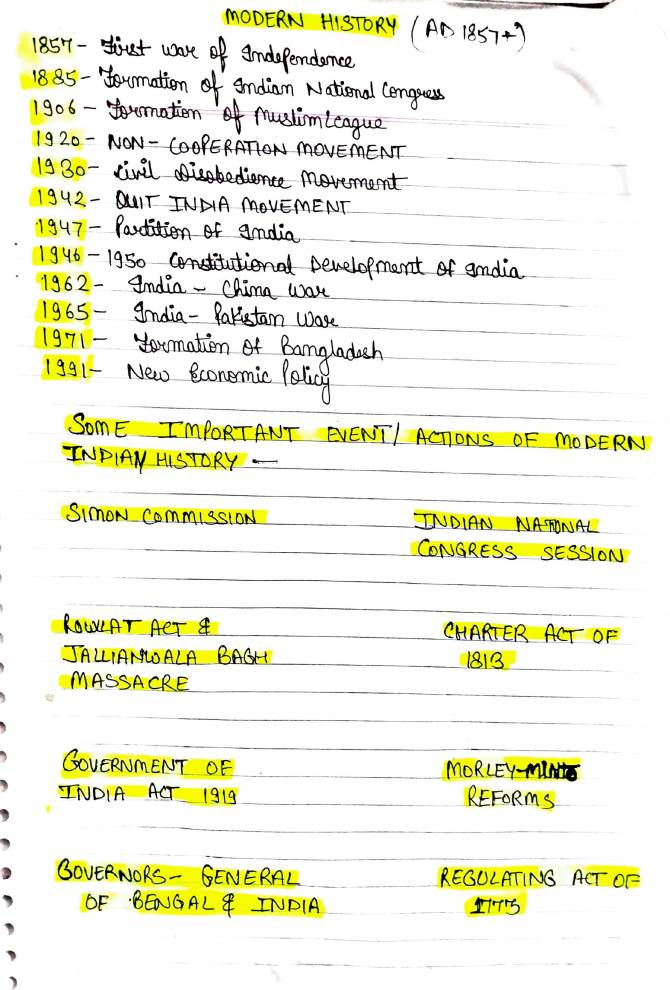 MODERN HISTORY (AD 1857+)
1857 - First war of Independence
1885 - Formation of Indian National Congress
1906 - Formation of Muslim League
1920 - NON-COOPERATION MOVEMENT
1930 - Civil Disobedience Movement
1942 - QUIT INDIA MOVEMENT
1947 - Partition of India
1946 - 1950 Constitutional Development of India
1962 - India - China War
1965 - India - Pakistan War
1971 - Formation of Bangladesh
1991 - New Economic Policy
SOME IMPORTANT EVENT/ ACTIONS OF MODERN
INDIAN HISTORY -
SIMON COMMISSION
INDIAN NATIONAL
CONGRESS SESSION
ROWLAT ACT &
JALLIANWALA BAGH
MASSACRE
CHARTER ACT OF
1813
GOVERNMENT OF
INDIA ACT 1919
MORLEY-MINTO
REFORMS
GOVERNORS- GENERAL
OF BENGAL & INDIA
REGULATING ACT OF
1773